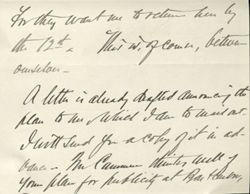 For they want me to return him by
the 12th. This is, of course, between
ourselves –
A letter is already drafted announcing the
plan to me which I am to send out.
I will send you a copy of it in ad-
vance – Mr Cummer thinks well of
your plan for publicity at Bar Harbor